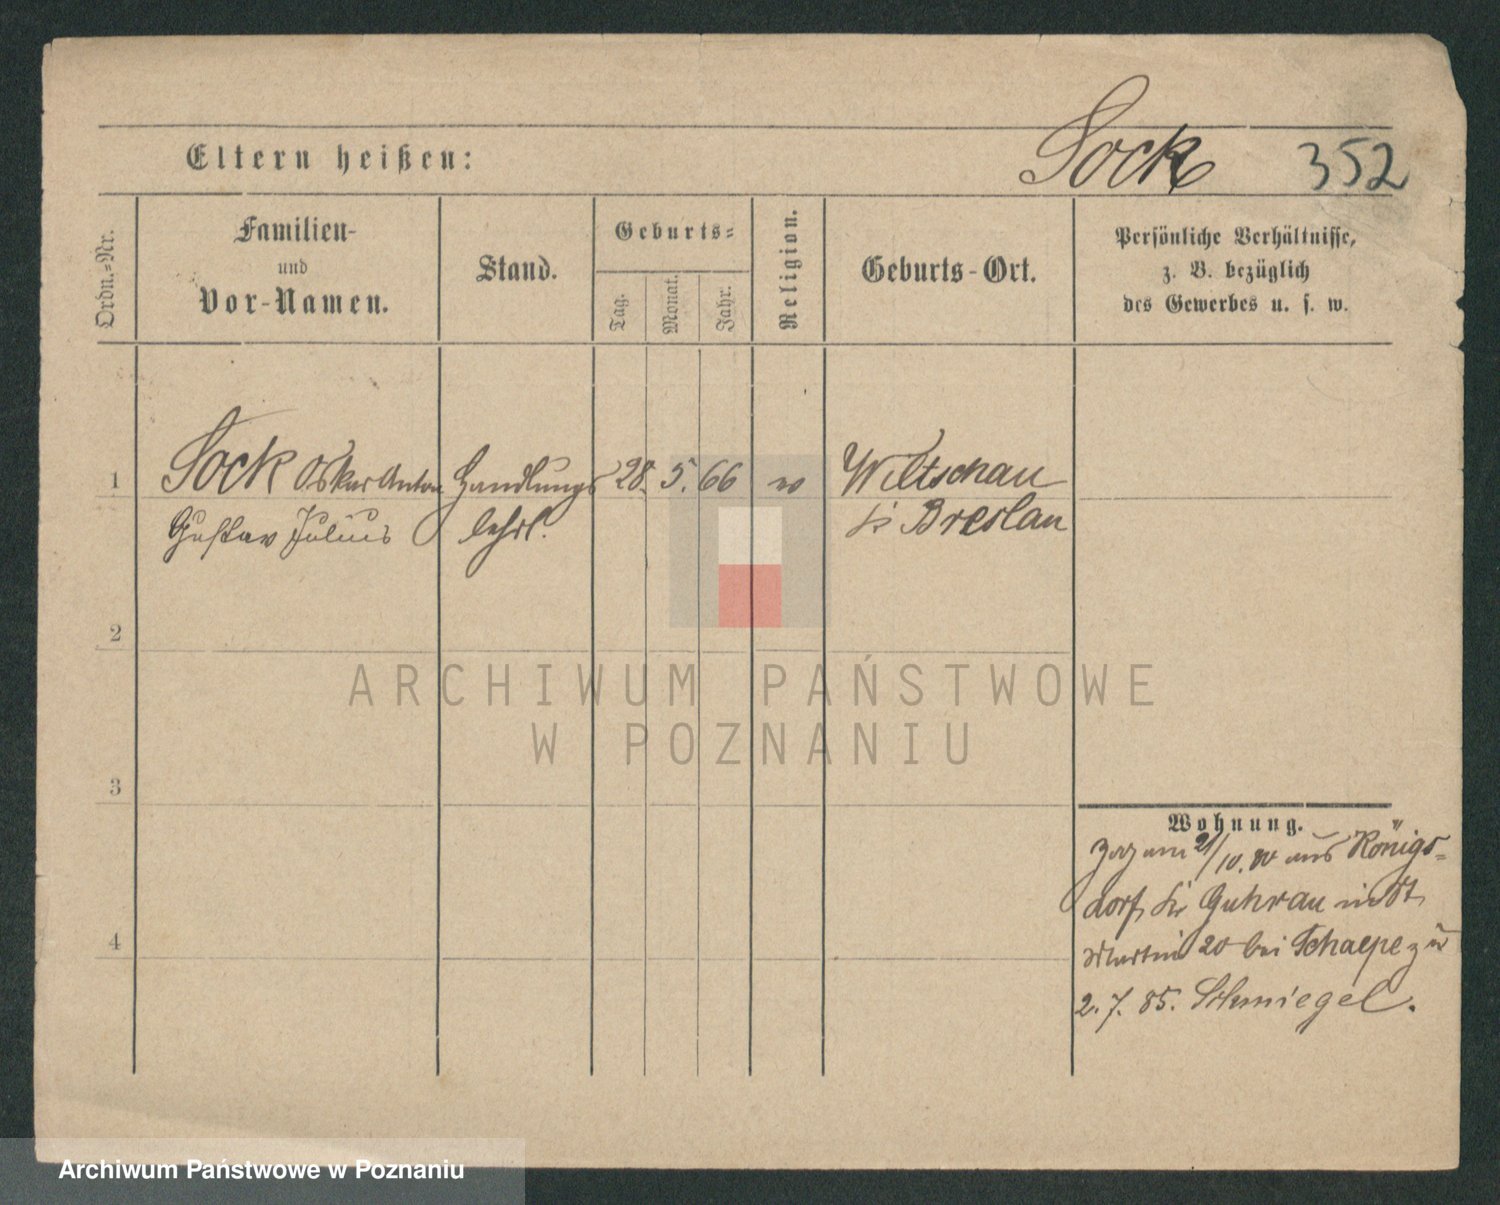 Eltern heißen:
Sock
352
Ordn.-Nr.
Familien-
und
Vor-Namen.
Stand.
Geburts-
Tag.
Monat.
Jahr.
Religion.
Geburts-Ort.
Persönliche Verhältnisse,
z. B. bezüglich
des Gewerbes u. s. w.
1
Sock Oskar Anton
Gustav Julius
Handlungs
lehrl.
28. 5. 66
Wiltschau
Kr Breslau
2
3
4
ARCHIWUM PAŃSTWOWE
W POZNANIU
Wohnung.
am 21/10. aus Königs-
dorf Kr Guhrau in St
Martin 20 bei Schaepe
2. 7. 85. Schmiegel.
Archiwum Państwowe w Poznaniu